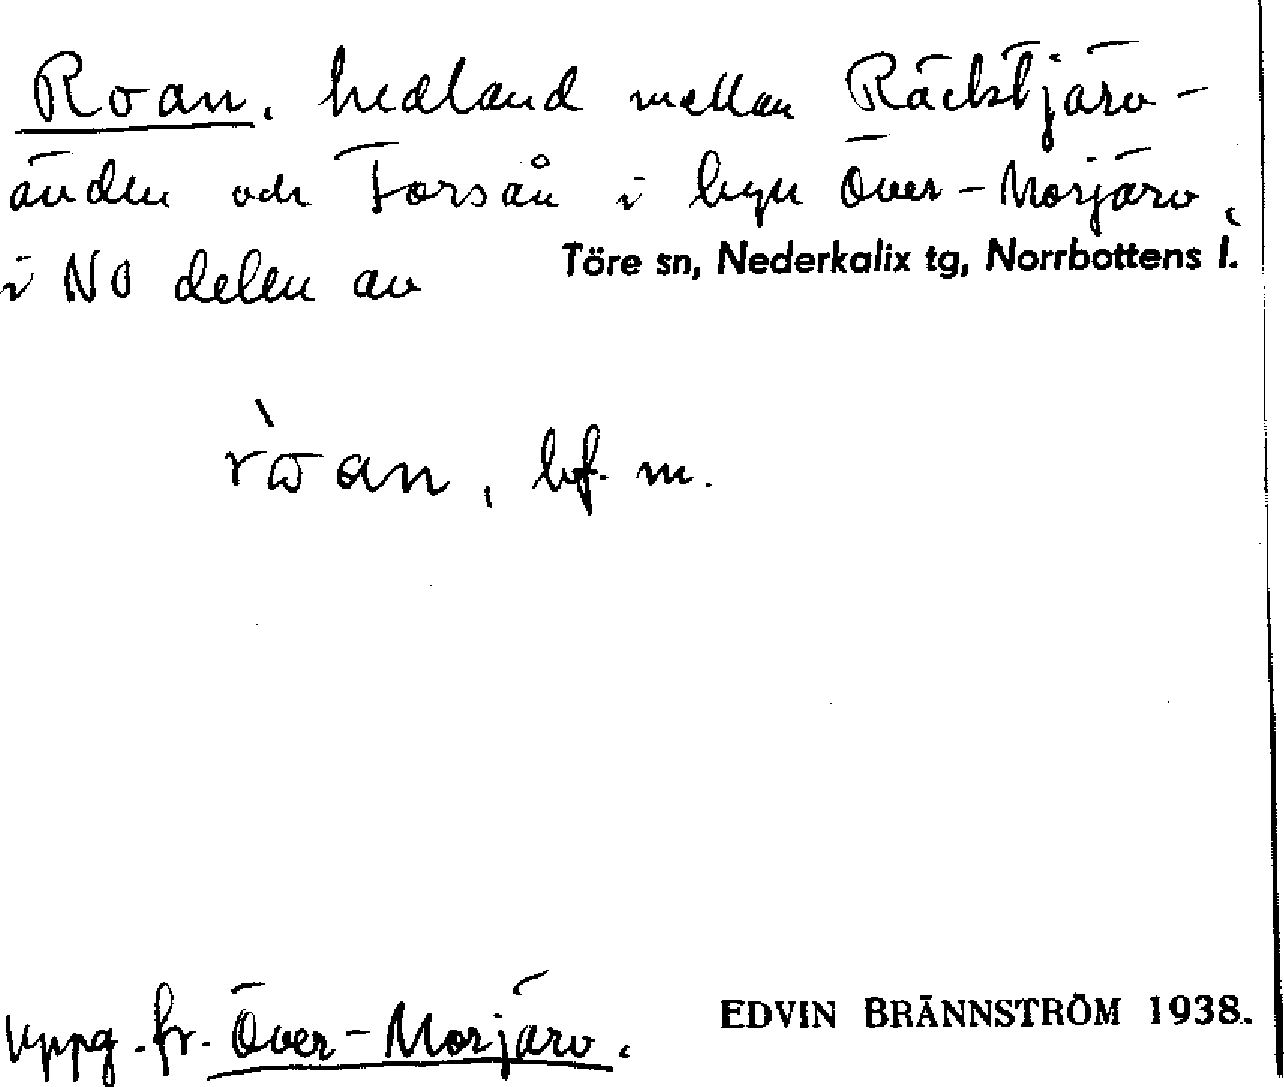 Roan, hedland mellan Räcktjärv-
änden och Forsån i byn Över-Morjärv,
i NO delen av Töre sn, Nederkalix tg, Norrbottens l.
ròan, bf. m.
Uppg. fr. Över-Morjärv.
EDVIN BRÄNNSTRÖM 1938.